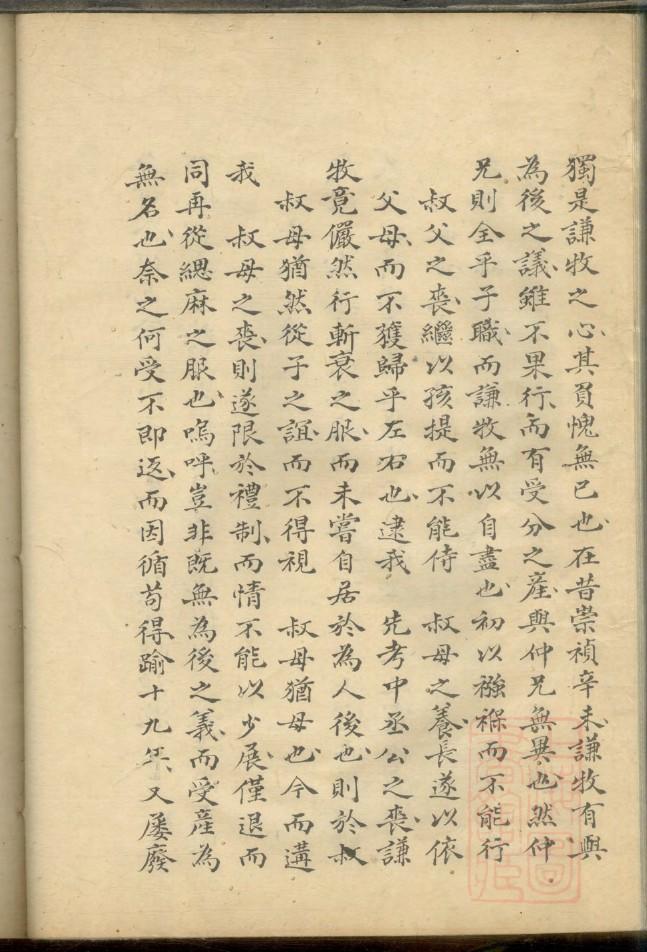 獨是謙牧之心其負愧無已也在昔崇禎辛未謙牧有與
為後之議雖不果行而有受分之產與仲兄無異也然仲
兄則全乎子職而謙牧無以自盡也初以襁褓而不能行
叔父之喪繼以孩提而不能侍　叔母之養長遂以依
父母而不獲歸乎左右也逮我　先考中丞公之喪謙
牧竟儼然行斬衰之服而未嘗自居於為人後也則於叔
叔母猶然從子之誼而不得視　叔母猶母也今而遘
我　叔母之喪則遂限於禮制而情不能以少展僅退而
同再從緦麻之服也嗚呼豈非既無為後之義而受產為
無名也奈之何受不即返而因循苟得踰十九年又屡廢